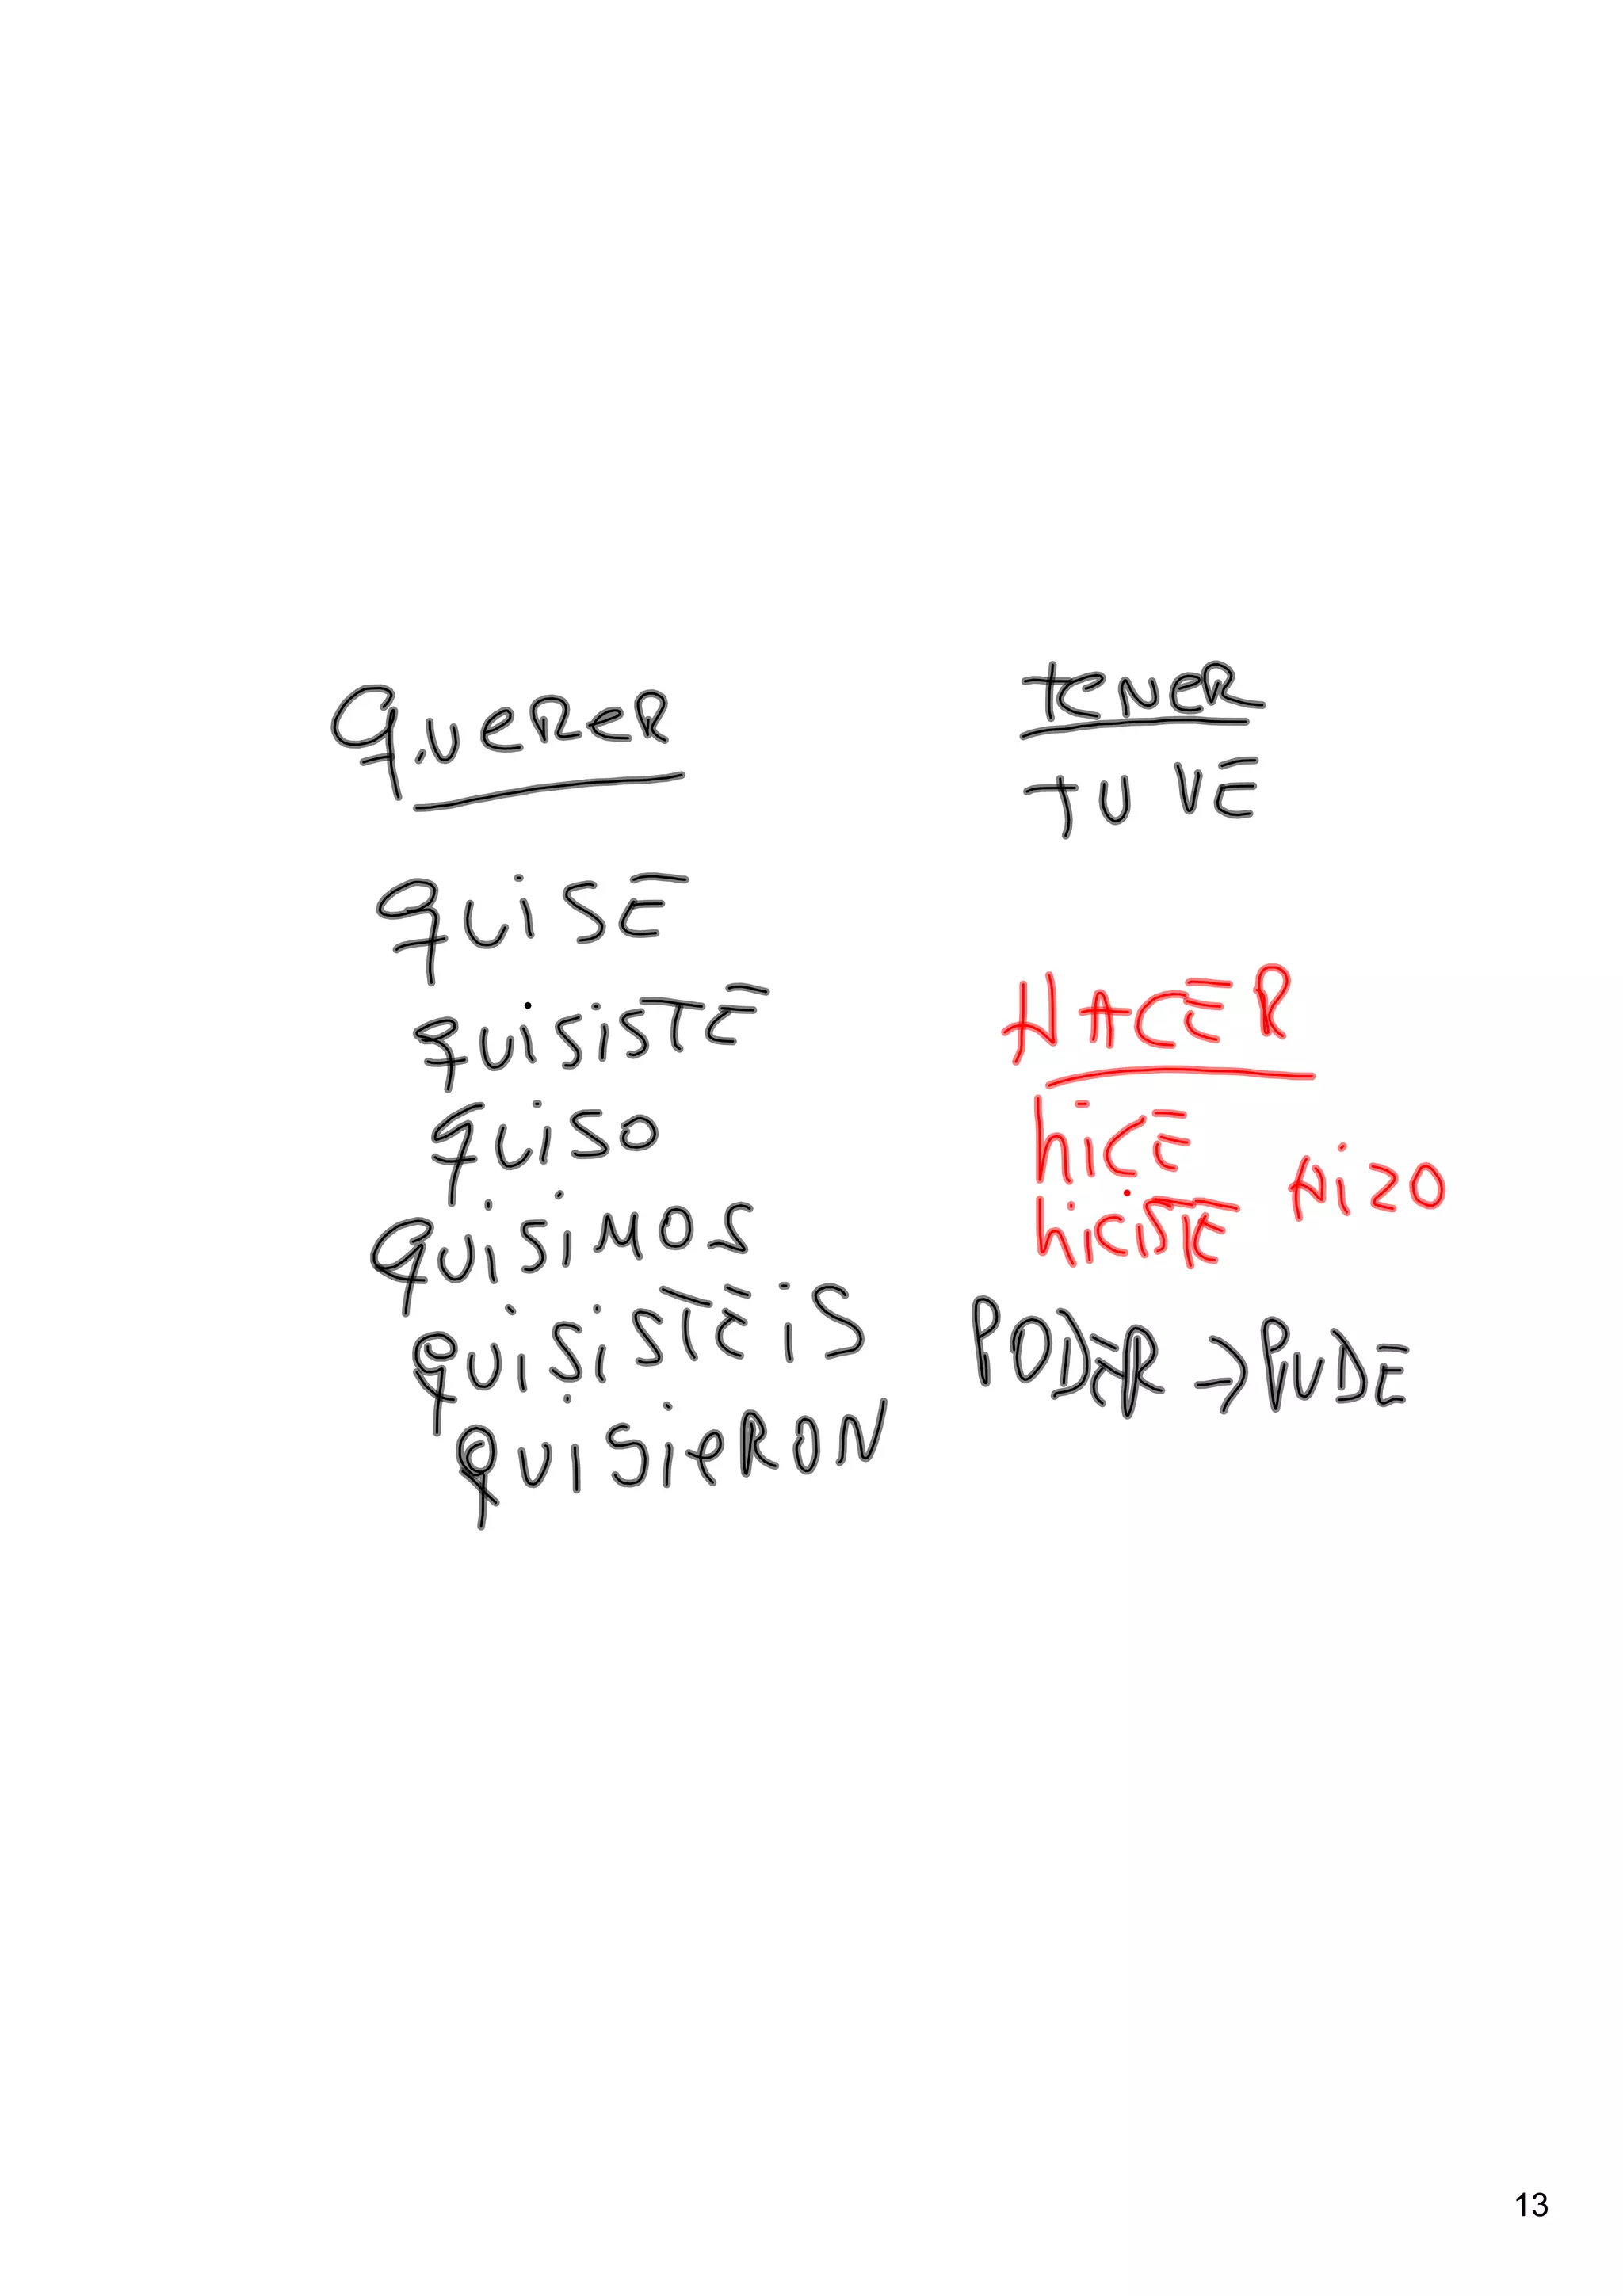 QUERER
QUISE
QUISISTE
QUISO
QUISIMOS
QUISISTEIS
QUISIERON
TENER
TUVE
HACER
hiCE
hiciSTE
hizo
PODER → PUDE
13